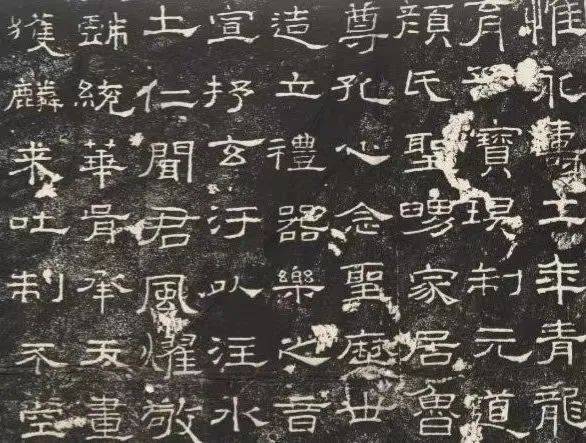 惟永壽二年青龍
育孔寶俱制元道
顏氏聖舅家居魯
尊孔心念聖歷世
造立禮器樂之音
宣抒玄汙以注水
土仁聞君風燿敬
戲統華胥承天畫
獲麟來吐制不空